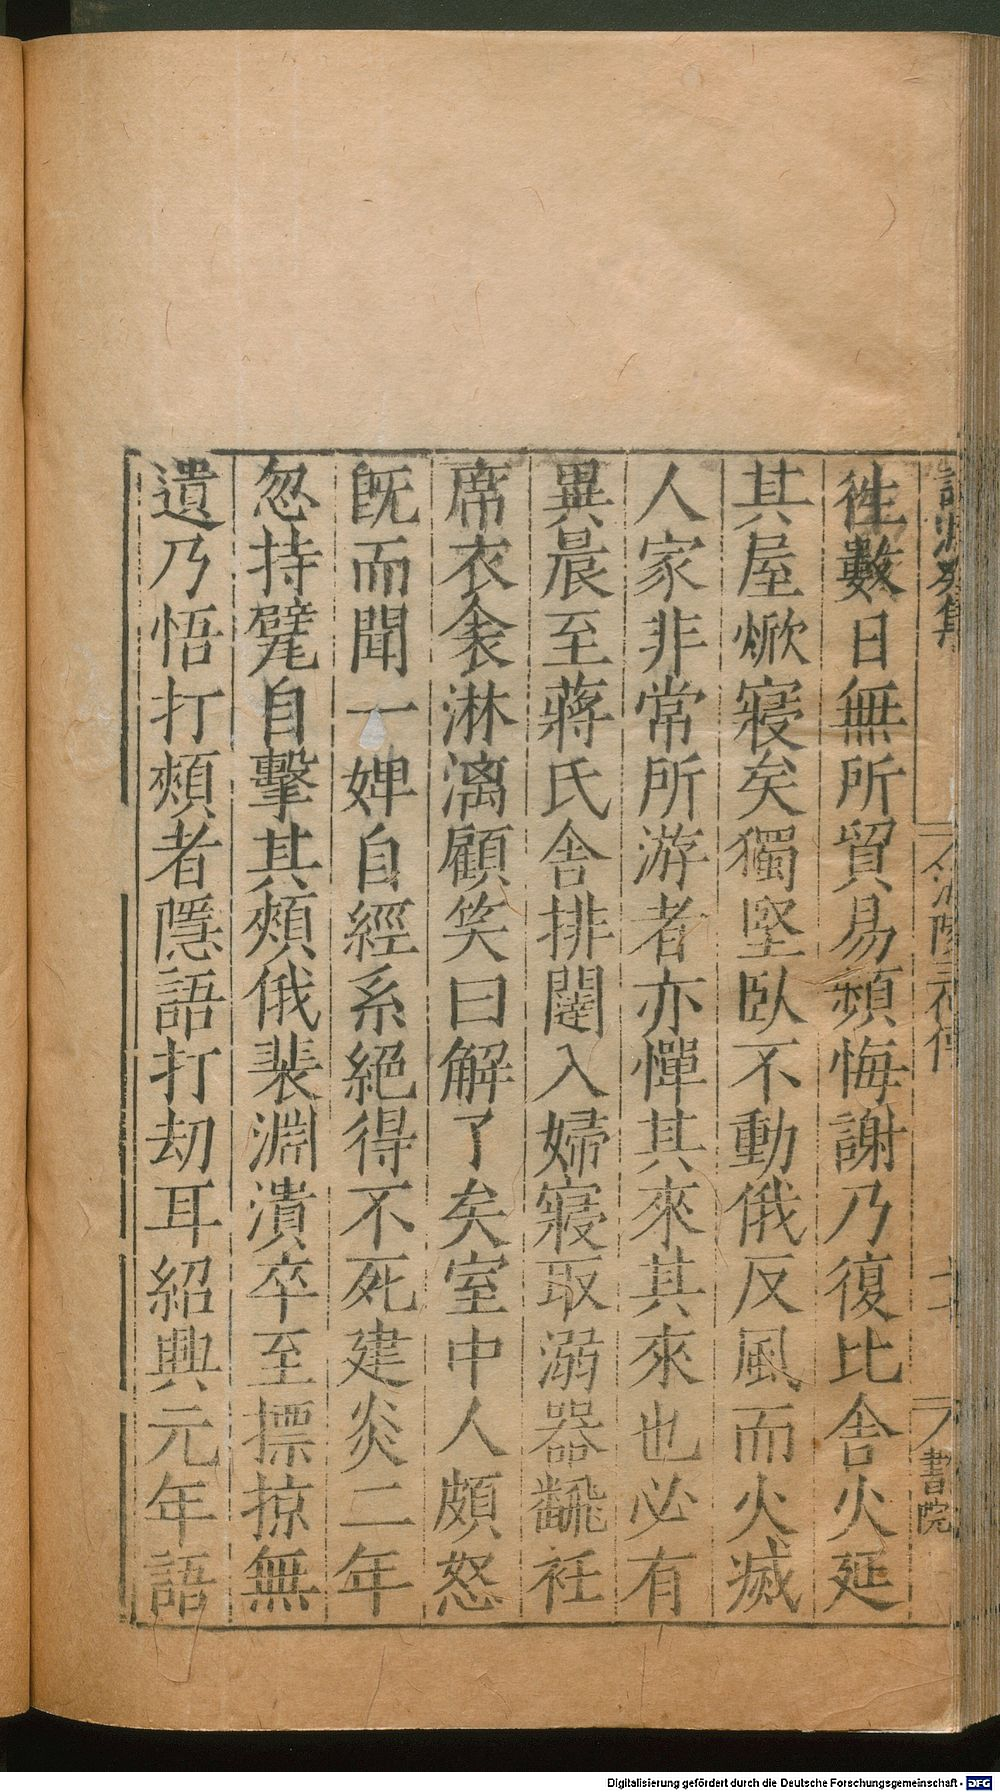 徃數日無所貿易頻悔謝乃復比舍火延
其屋焮寢矣獨堅臥不動俄反風而火滅
人家非常所游者亦憚其來其來也必有
異晨至蔣氏舍排闥入婦寢取溺器飜衽
席衣衾淋漓顧笑曰解了矣室中人頗怒
旣而聞一婢自經系絕得不死建炎二年
忽持甓自擊其頰俄裴淵潰卒至摽掠無
遺乃悟打頰者隱語打劫耳紹興元年語
書院
Digitalisierung gefördert durch die Deutsche Forschungsgemeinschaft - DFG